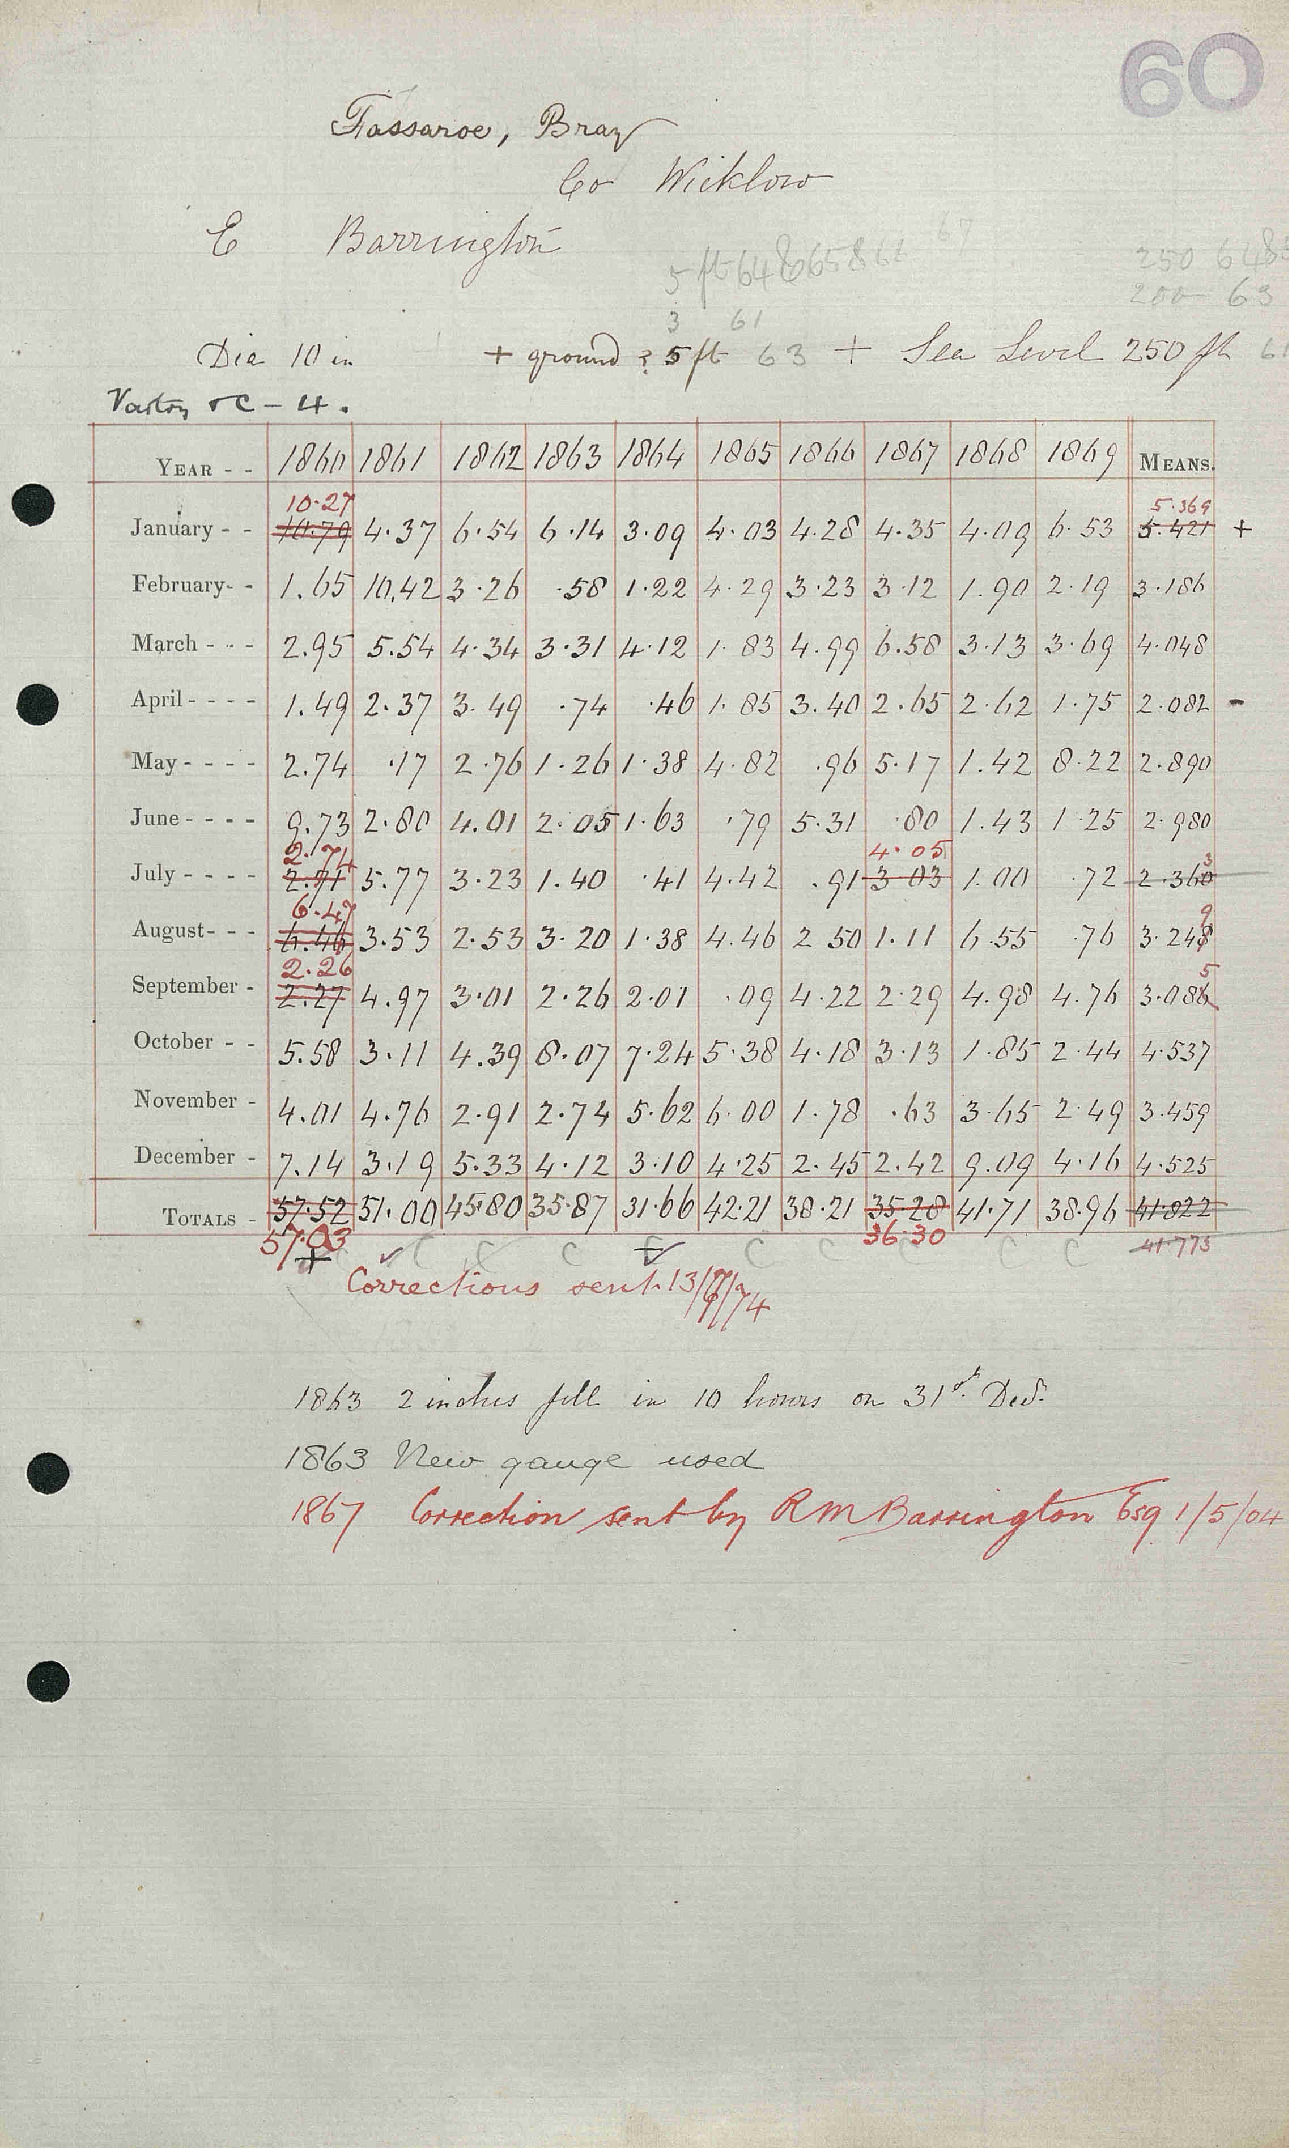 60
Fassaroe, Bray
Co Wicklow
E Barrington
67
5 ft 64 65 66
250 64
200 63
3 61
Dia 10 in + ground ? 5 ft 63 + Sea Level 250 ft 61
Vartry &C - 4.
YEAR - - 1860 1861 1862 1863 1864 1865 1866 1867 1868 1869 MEANS.
10.27 5.369
January - - 10.79 4.37 6.54 6.14 3.09 4.03 4.28 4.35 4.09 6.53 5.421 +
February- - 1.65 10.42 3.26 .58 1.22 4.29 3.23 3.12 1.90 2.19 3.186
March - - - 2.95 5.54 4.34 3.31 4.12 1.83 4.99 6.58 3.13 3.69 4.048
April - - - - 1.49 2.37 3.49 .74 .46 1.85 3.40 2.65 2.62 1.75 2.082 -
May - - - - 2.74 .17 2.76 1.26 1.38 4.82 .96 5.17 1.42 8.22 2.890
June - - - - 9.73 2.80 4.01 2.05 1.63 .79 5.31 .80 1.43 1.25 2.980
2.74 4.05 3
July - - - - 2.71 5.77 3.23 1.40 .41 4.42 .91 3.03 1.00 .72 2.360
6.47 9
August- - - 6.46 3.53 2.53 3.20 1.38 4.46 2.50 1.11 6.55 .76 3.248
2.26 5
September - 2.27 4.97 3.01 2.26 2.01 .09 4.22 2.29 4.98 4.76 3.086
October - - 5.58 3.11 4.39 8.07 7.24 5.38 4.18 3.13 1.85 2.44 4.537
November - 4.01 4.76 2.91 2.74 5.62 6.00 1.78 .63 3.65 2.49 3.459
December - 7.14 3.19 5.33 4.12 3.10 4.25 2.45 2.42 9.09 4.16 4.525
TOTALS - 57.52 51.00 45.80 35.87 31.66 42.21 38.21 35.28 41.71 38.96 41.822
57.03 36.30 41.773
+ C C C C C C C
Corrections sent 13/7/74
1863 2 inches fell in 10 hours on 31st Decr.
1863 New gauge used
1867 Correction sent by R M Barrington Esq 1/5/04